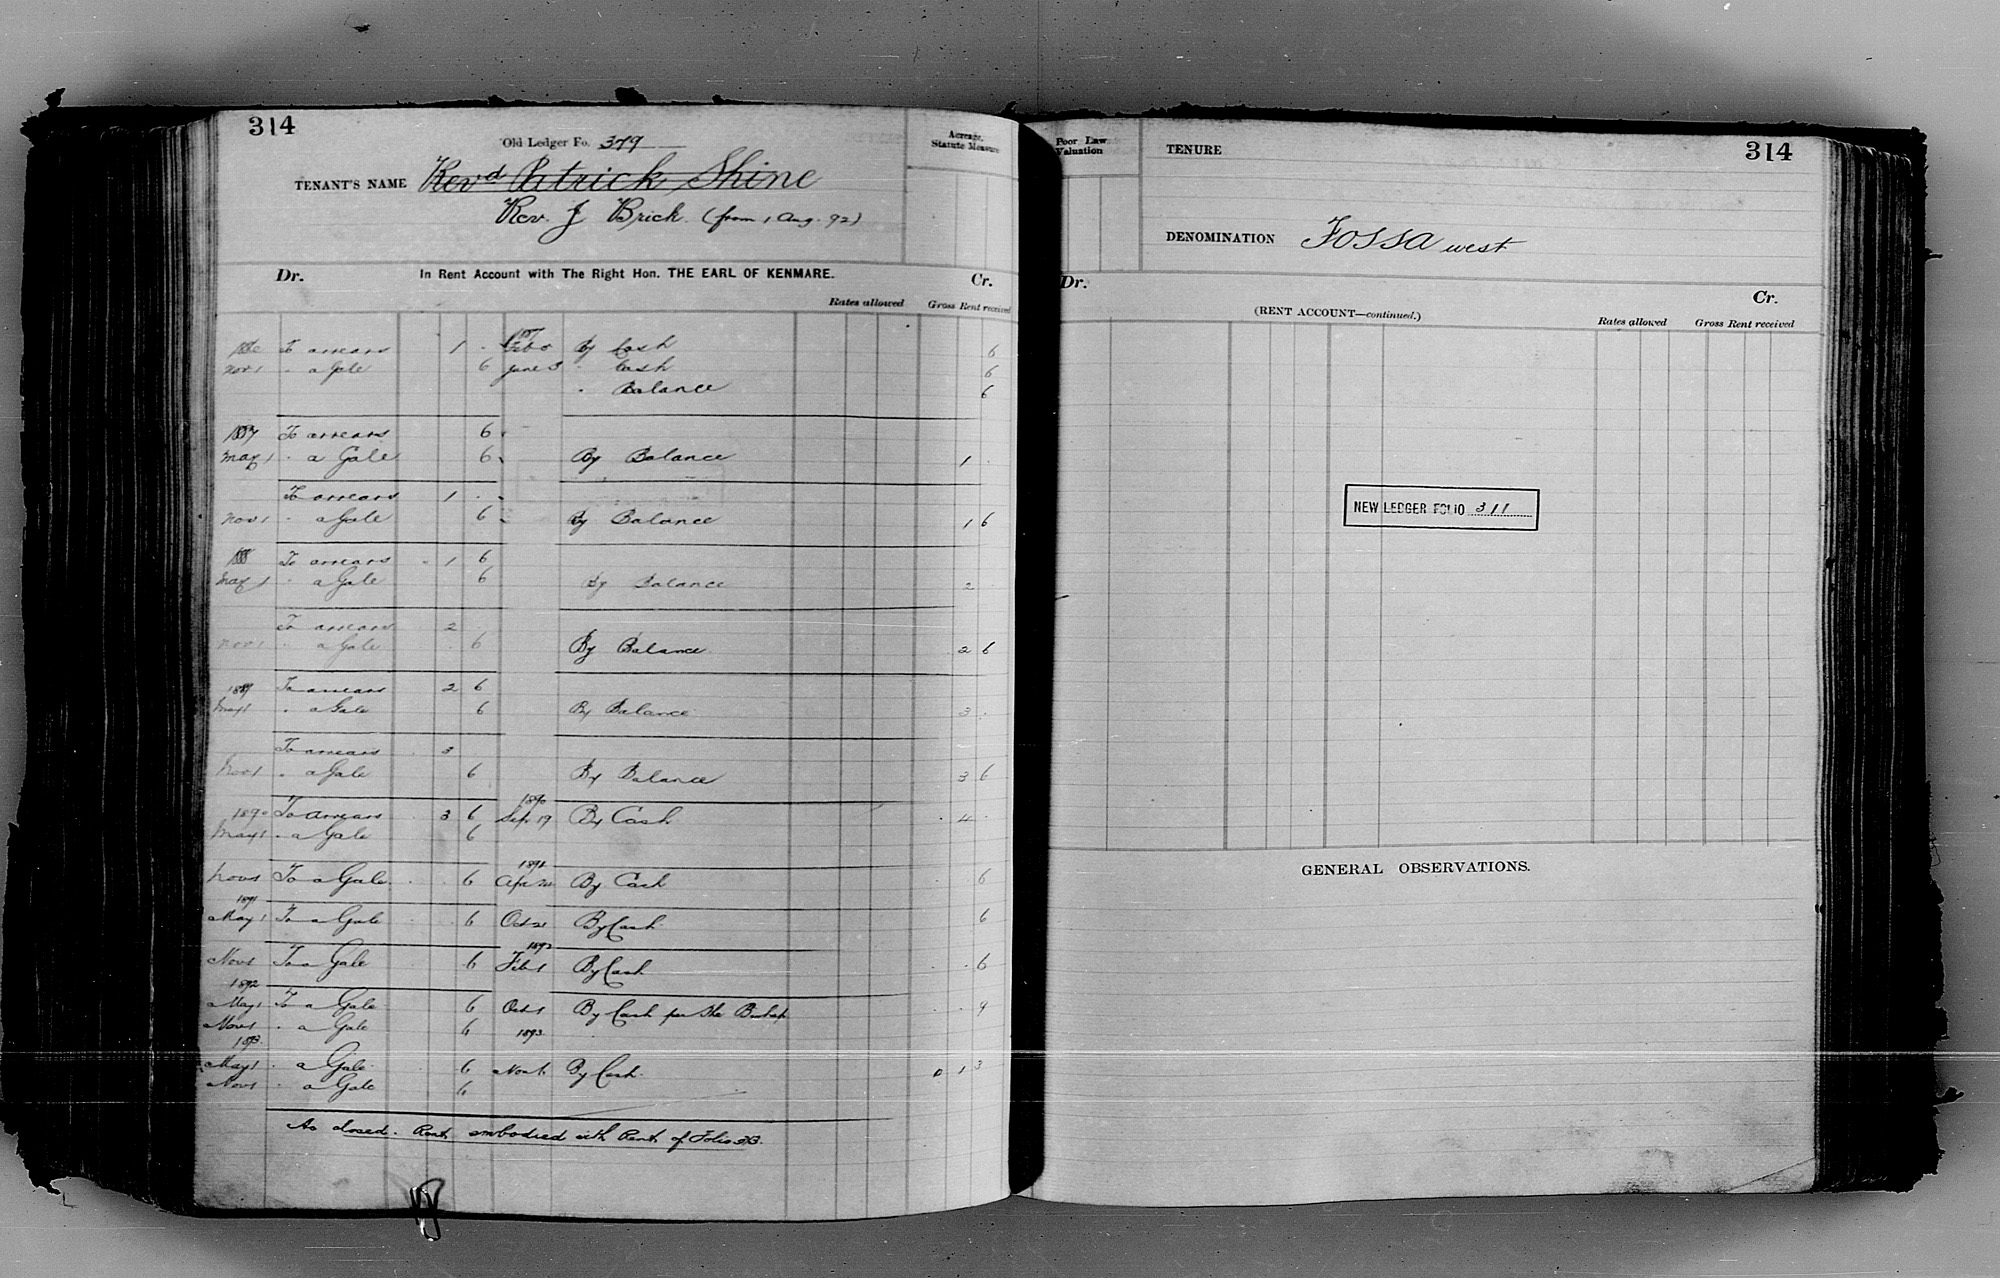 314
Old Ledger Fo. 379
Acreage, Statute Measure
TENANT'S NAME Revd Patrick Shine
Rev. J Brick (from 1 Aug. 92)
Dr. In Rent Account with The Right Hon. THE EARL OF KENMARE. Cr.
Rates allowed Gross Rent received
1886 To arrears 1 . 1887 Feb By Cash 6
Nov 1 " a Gale 6 June 3 " Cash 6
" Balance 6
1887 To arrears 6
May 1 " a Gale 6 By Balance 1 .
To arrears 1 .
Nov 1 " a Gale 6 By Balance 1 6
1888 To arrears 1 6
May 1 " a Gale 6 By Balance 2
To arrears 2
Nov 1 " a Gale 6 By Balance 2 6
1889 To arrears 2 6
May 1 " a Gale 6 By Balance 3 .
To arrears 3
Nov 1 " a Gale 6 By Balance 3 6
1890 To arrears 3 6 1890 Sep 19 By Cash 4 .
May 1 " a Gale 6
Nov 1 To a Gale 6 1891 Apr By Cash 6
1891
May 1 To a Gale 6 Oct 21 By Cash 6
Nov 1 To a Gale 6 1892 Feb 1 By Cash 6
1892
May 1 To a Gale 6 Oct 1 By Cash per the Bishop 9
Nov 1 " a Gale 6 1893
1893
May 1 " a Gale 6 Nov By Cash 0 1 3
Nov 1 " a Gale 6
Ac closed. Rent embodied with Rent of Folio 313.
314
Poor Law Valuation
TENURE
DENOMINATION Fossa west
Dr. Cr.
(RENT ACCOUNT—continued.)
Rates allowed Gross Rent received
NEW LEDGER FOLIO 311
GENERAL OBSERVATIONS.